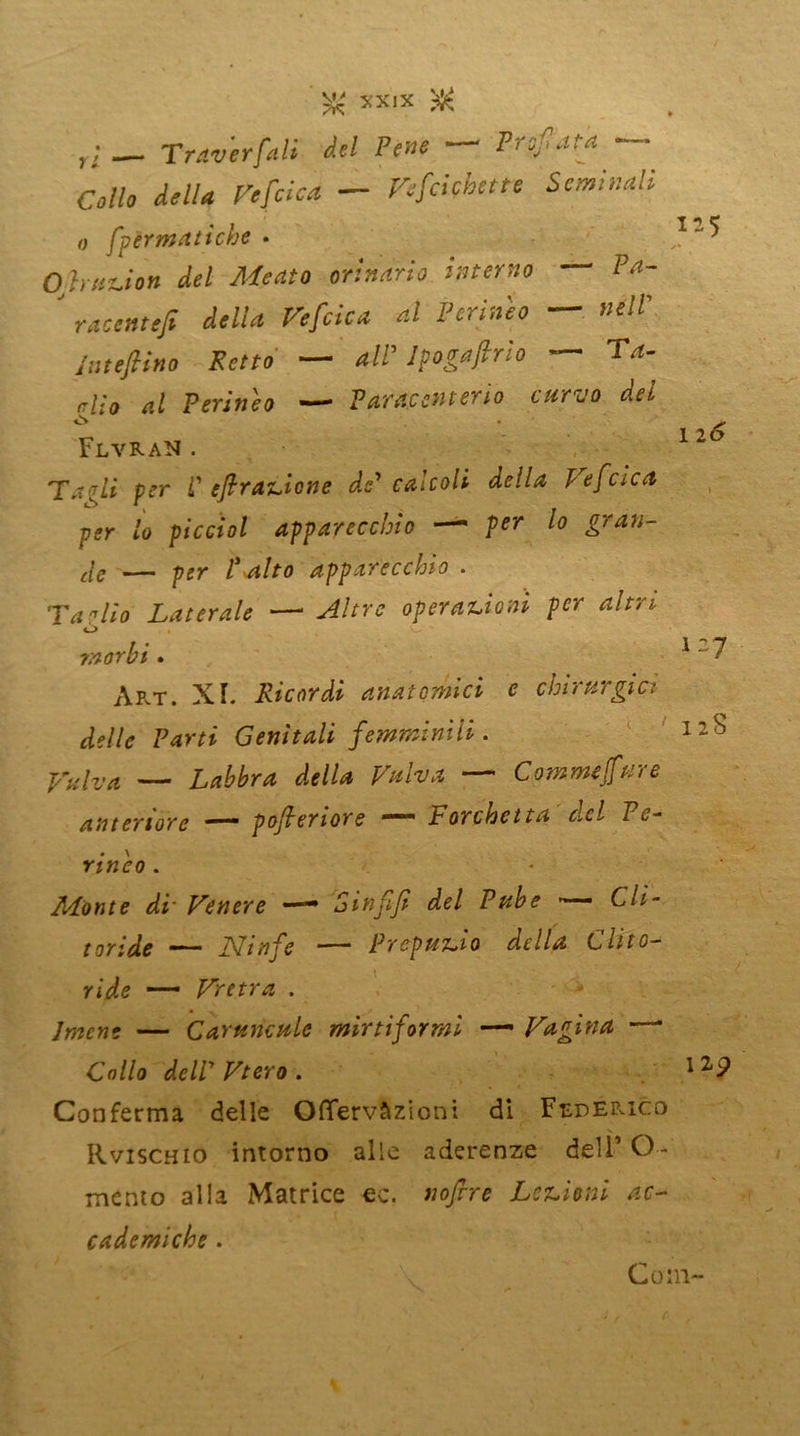 XXIX
ri — Traverſali del Pene — Proſtata —
Collo della Veſcica — Veſcichette Seminali
o ſpermatiche . 125
Oſtruzion del Meato orinario interno — Pa-
racenteſi della Veſcica al Perinèo — nell'
Inteſtino Retto — all' Ipogaſtrio — Ta-
glio al Perinèo — Paracenterio curvo del
FLVRAN . 126
Tagli per l' eſtrazione de' calcoli della Veſcica
per lo picciol apparecchio — per lo gran-
de — per l' alto apparecchio .
Taglio Laterale — Altre operazioni per altri
morbi . 127
ART. XI. Ricordi anatomici e chirurgici
delle Parti Genitali femminili . 128
Vulva — Labbra della Vulva — Commeſſure
anteriore — poſteriore — Forchetta del Pe-
rinèo .
Monte di Venere — Sinfiſi del Pube — Cli-
toride — Ninfe — Prepuzio della Clito-
ride — Vretra .
Imene — Caruncule mirtiformi — Vagina —
Collo dell' Vtero . 129
Conferma delle Oſſervàzioni di FEDERICO
RVISCHIO intorno alle aderenze dell' O-
mento alla Matrice ec. noſtre Lezioni ac-
cademiche .
Com-